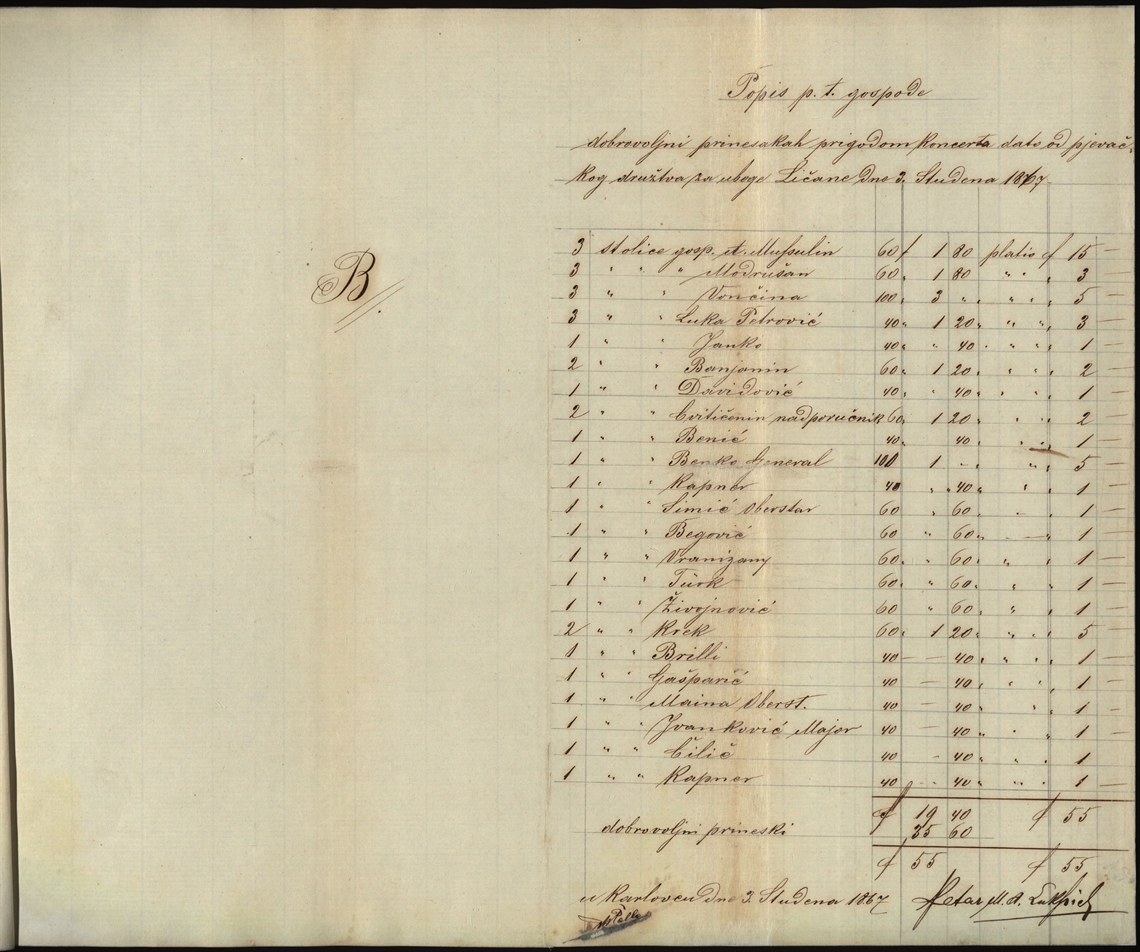 B
Popis p. t. gospode
dobrovoljni prinesakah prigodom koncerta dato od pjevač-
kog družtva za uboge Ličane dne 3. Studena 1867
3 stolice gosp. M. Mussulin 60 f 1 80 platio f 15 —
3 " " " Modrušan 60 " 1 80 " " 3 —
3 " " Vončina 100 " 3 " " " 5 —
3 " " Luka Petrović 40 " 1 20 " " " 3 —
1 " " Janko 40 " " 40 " " " 1 —
2 " " Banjanin 60 " 1 20 " " " 2 —
1 " " Davidović 40 " " 40 " " " 1 —
2 " " Cvitičanin nadporučnik 60 " 1 20 " " 2
1 " " Benić 40 " 40 " " 1 —
1 " " Benko General 100 1 " " " 5 —
1 " " Kapner 40 " " 40 " " " 1 —
1 " " Simić Oberstar 60 " 60 " — " 1 —
1 " " Begović 60 " 60 " — 1 —
1 " " Vranizany 60 " " 60 " " " 1 —
1 " " Türk 60 " " 60 " " " 1 —
1 " " Živojnović 60 " 60 " " 1 —
2 " " Krek 60 " 1 20 " " " 5 —
1 " " Brilli 40 — — 40 " " " 1 —
1 " " Gašparić 40 — 40 " " " 1 —
1 " " Maina Oberst. 40 — 40 " " " 1 —
1 " " Ivanković Major 40 — 40 " " 1 —
1 " " Čilič 40 — 40 " " " 1 —
1 " " Kapner 40 — 40 " " " 1 —
f 19 40 f 55
dobrovoljni prineski 35 60
f 55 f 55
u Karlovcu dne 3. Studena 1867 Petar M. A.